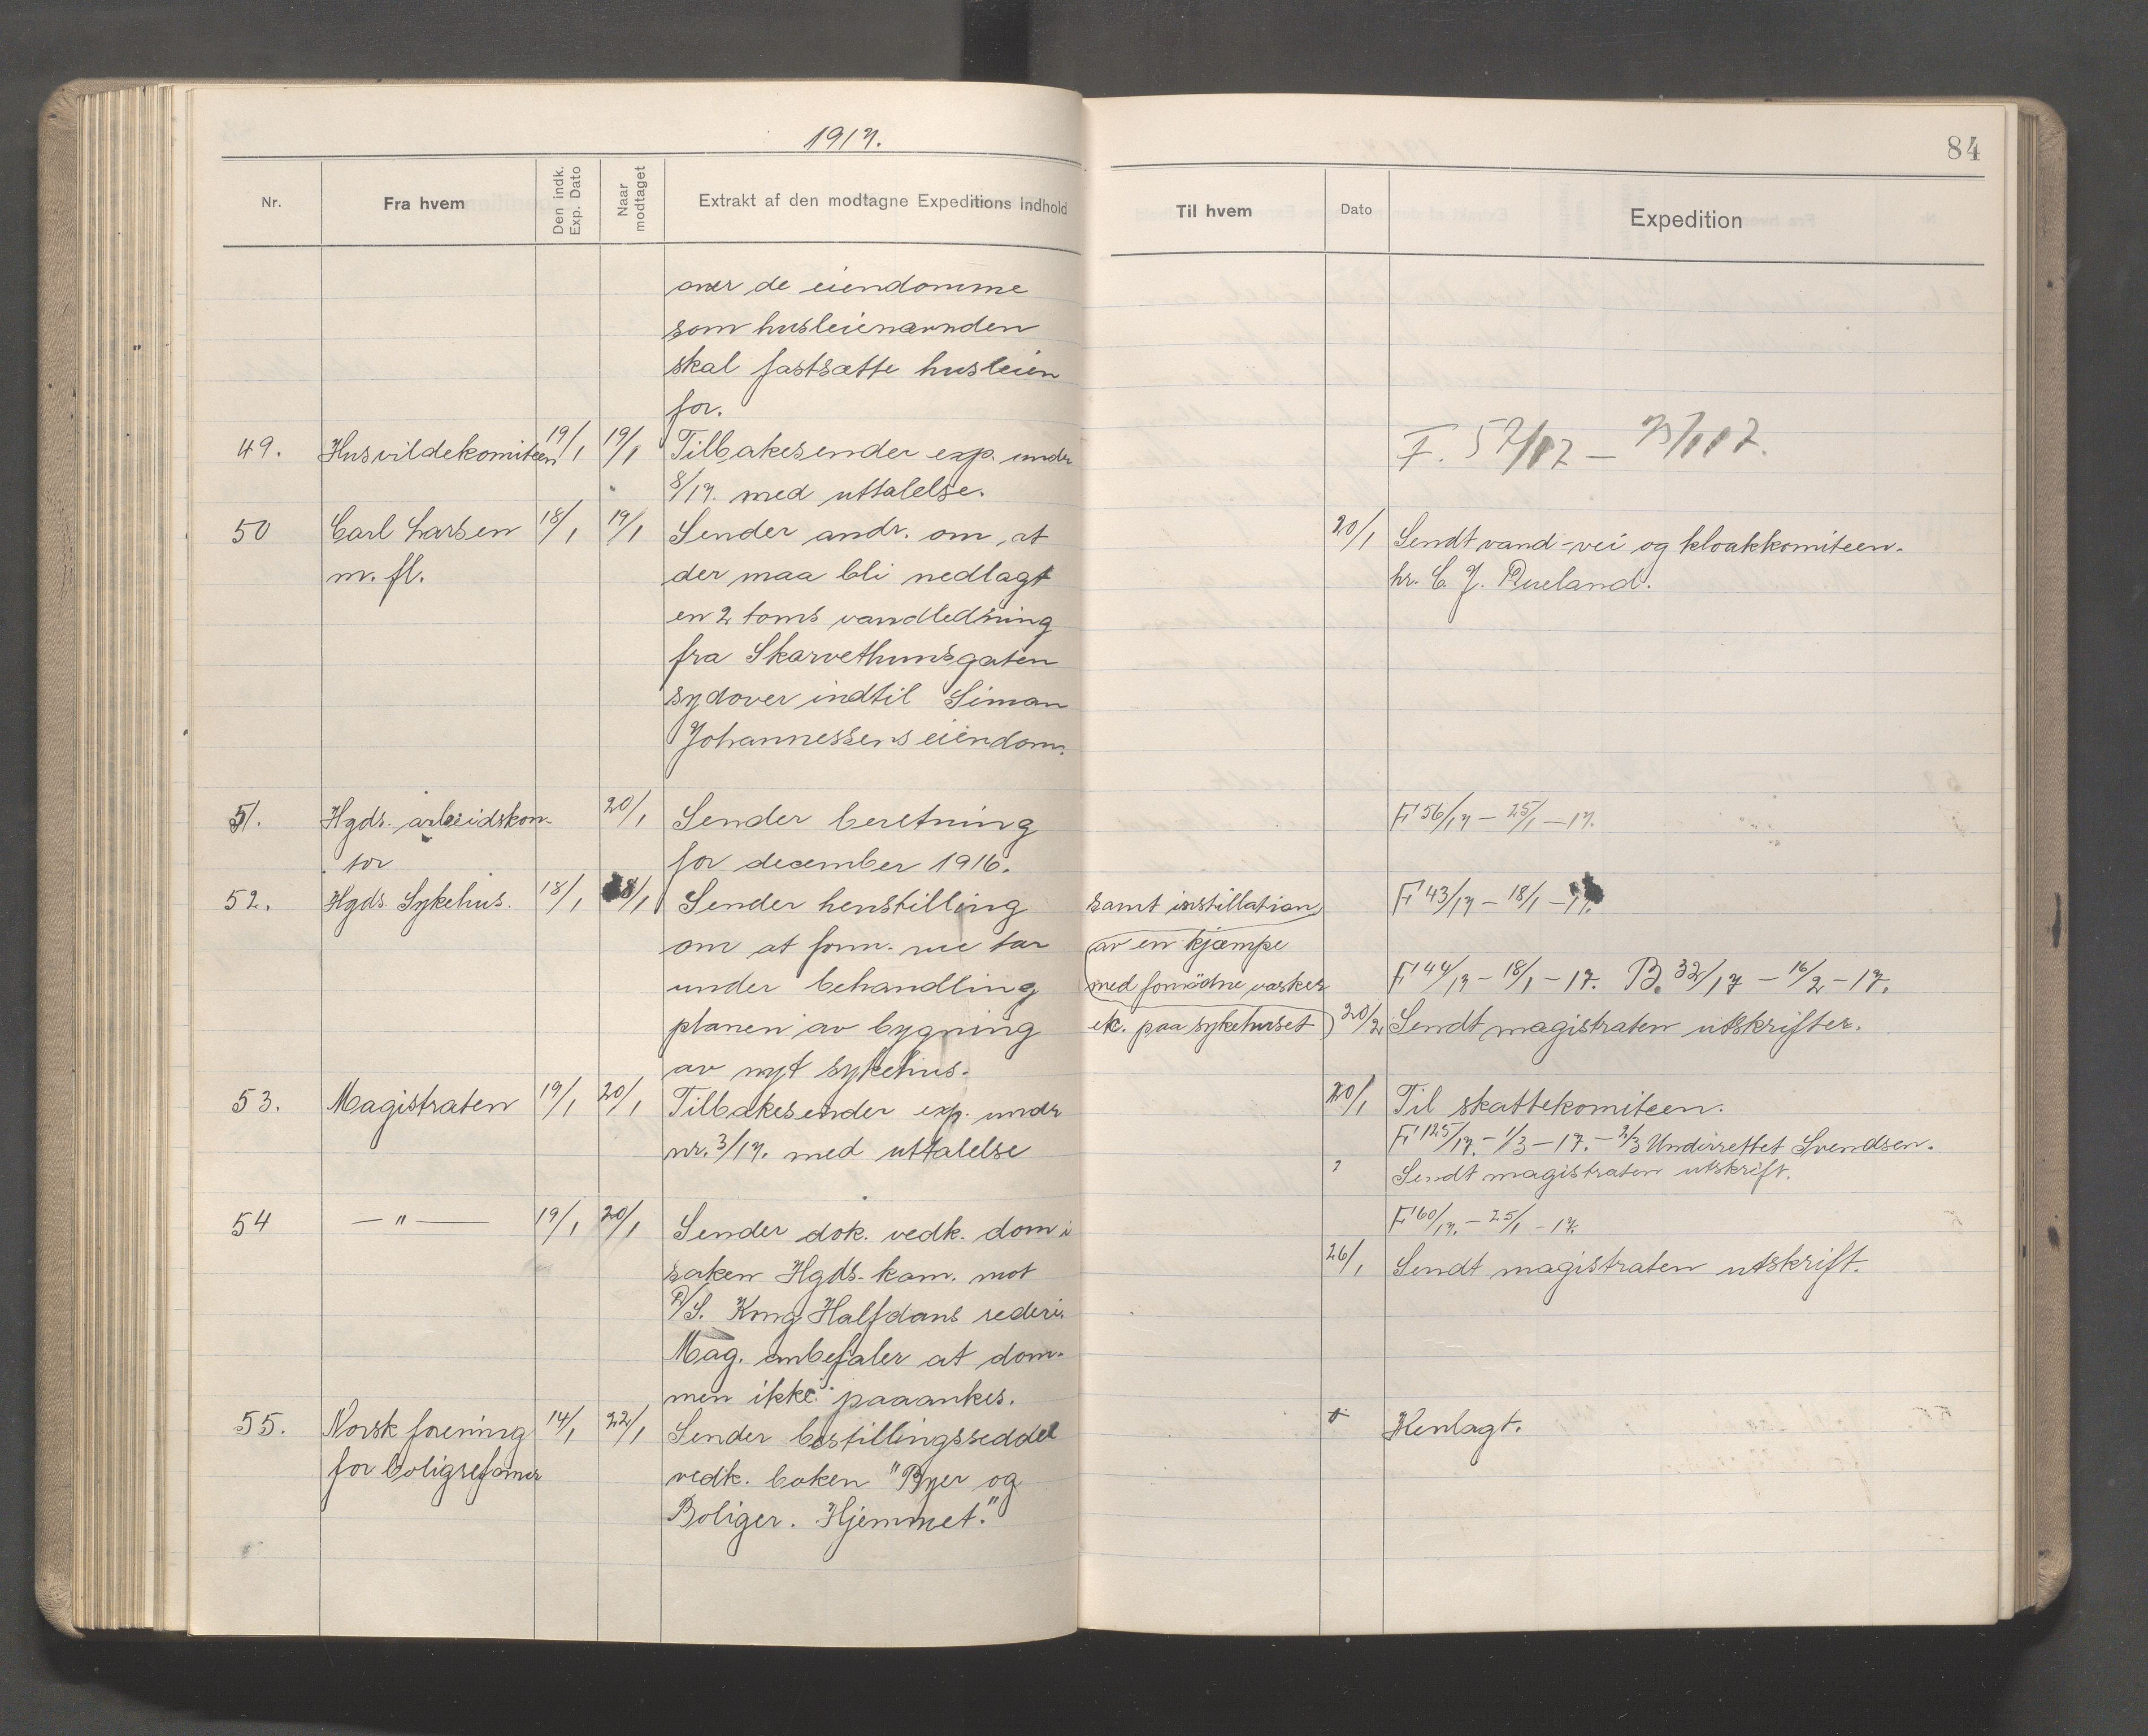 1917.
84
Nr.
Fra hvem
Den indk. Exp. Dato
Naar modtaget
Extrakt af den modtagne Expeditions Indhold
Til hvem
Dato
Expedition
over de eiendomme
som husleienævnden
skal fastsætte husleien
for.
49. Husvildekomiteen 19/1 19/1 Tilbakesender exp. under F. 57/17 –
8/17. med uttalelse.
50 Carl Larsen 18/1 19/1 Sender andr. om at 20/1 Sendt vand-vei og kloakkomiteen.
m. fl. der maa bli nedlagt hr. C. J.
en 2 toms vandledning
fra Skarvethunsgaten
sydover indtil Simon
Johannessens eiendom.
51. Hgds. arbeidskon- 20/1 Sender beretning F 56/17 – 25/1 – 17.
tor for december 1916.
52. Hgds. Sykehus. 18/1 18/1 Sender henstilling samt installation F 43/17 – 18/1 – 17.
om at form. vil tar av en kjæmpe
under behandling med fornødne vasker F 44/17 – 18/1 – 17. B. 32/17 – 16/2 – 17.
planen av bygning etc. paa sykehuset) 20/2 Sendt magistraten utskrifter.
av nyt sykehus.
53. Magistraten 19/1 20/1 Tilbakesender exp. under 20/1 Til skattekomiteen.
nr. 3/17. med uttalelse F 125/17. – 1/3 – 17. – 2/3 Underrettet Svendsen.
Sendt magistraten utskrift.
54 — " — 19/1 20/1 Sender dok. vedk. dom i F 60/17. – 25/1 – 17.
saken Hgds. kom. mot 26/1 Sendt magistraten utskrift.
A/S. Kong Halfdans rederi.
Mag. anbefaler at dom-
men ikke paaankes.
55. Norsk forening 14/1 22/1 Sender bestillingsseddel Henlagt.
for boligreformer vedk. boken "Byer og
Boliger. Hjemmet."